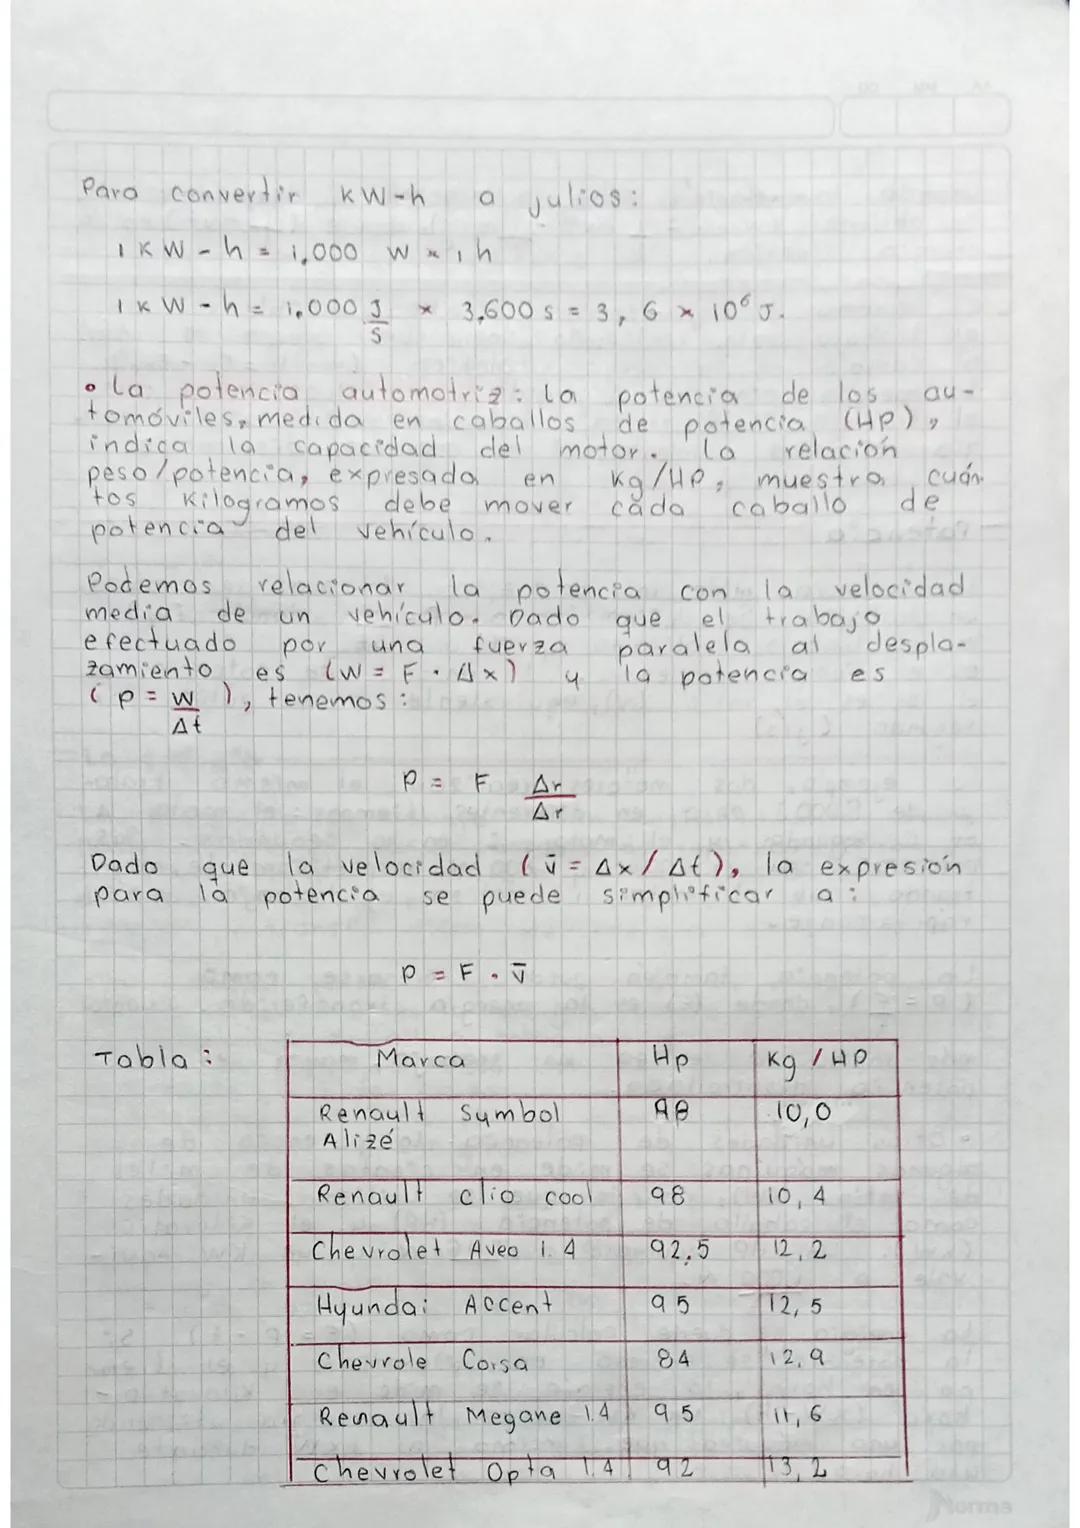 Para convertir KW-h a julios:
1 KW-h = 1,000 W × 1 h
1 KW-h = 1,000 J/S × 3,600 s = 3,6 × 10⁶ J.
• La potencia automotriz: la potencia de los au-
tomóviles, medida en caballos de potencia (HP),
indica la capacidad del motor. La relación
peso/potencia, expresada en Kg/HP, muestra cuán-
tos Kilogramos debe mover cada caballo de
potencia del vehículo.
Podemos relacionar la potencia con la velocidad
media de un vehículo. Dado que el trabajo
efectuado por una fuerza paralela al despla-
zamiento es (W = F · Δx) y la potencia es
(P = W/Δt), tenemos:
P = F Δr/Δr
Dado que la velocidad (v̄ = Δx/Δt), la expresión
para la potencia se puede simplificar a:
P = F · v̄
Tabla:
Marca Hp Kg/HP
Renault Symbol 98 10,0
Alizé
Renault clio cool 98 10,4
Chevrolet Aveo 1.4 92,5 12,2
Hyundai Accent 95 12,5
Chevrole Corsa 84 12,9
Renault Megane 1.4 95 11,6
Chevrolet Opta 1.4 92 13,2
Norma